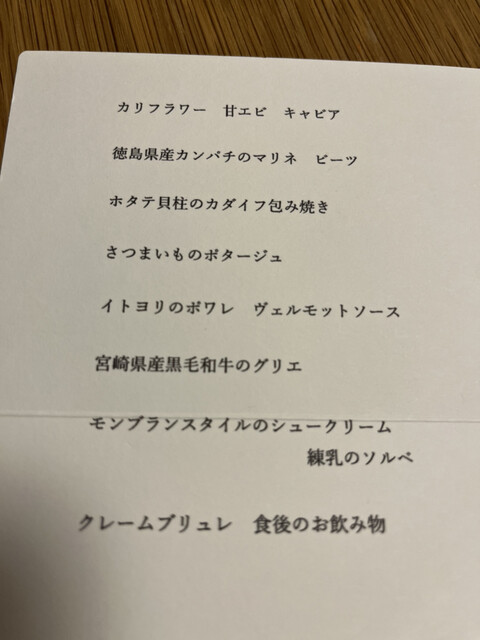 カリフラワー　甘エビ　キャビア
徳島県産カンパチのマリネ　ビーツ
ホタテ貝柱のカダイフ包み焼き
さつまいものポタージュ
イトヨリのポワレ　ヴェルモットソース
宮崎県産黒毛和牛のグリエ
モンブランスタイルのシュークリーム
練乳のソルベ
クレームブリュレ　食後のお飲み物